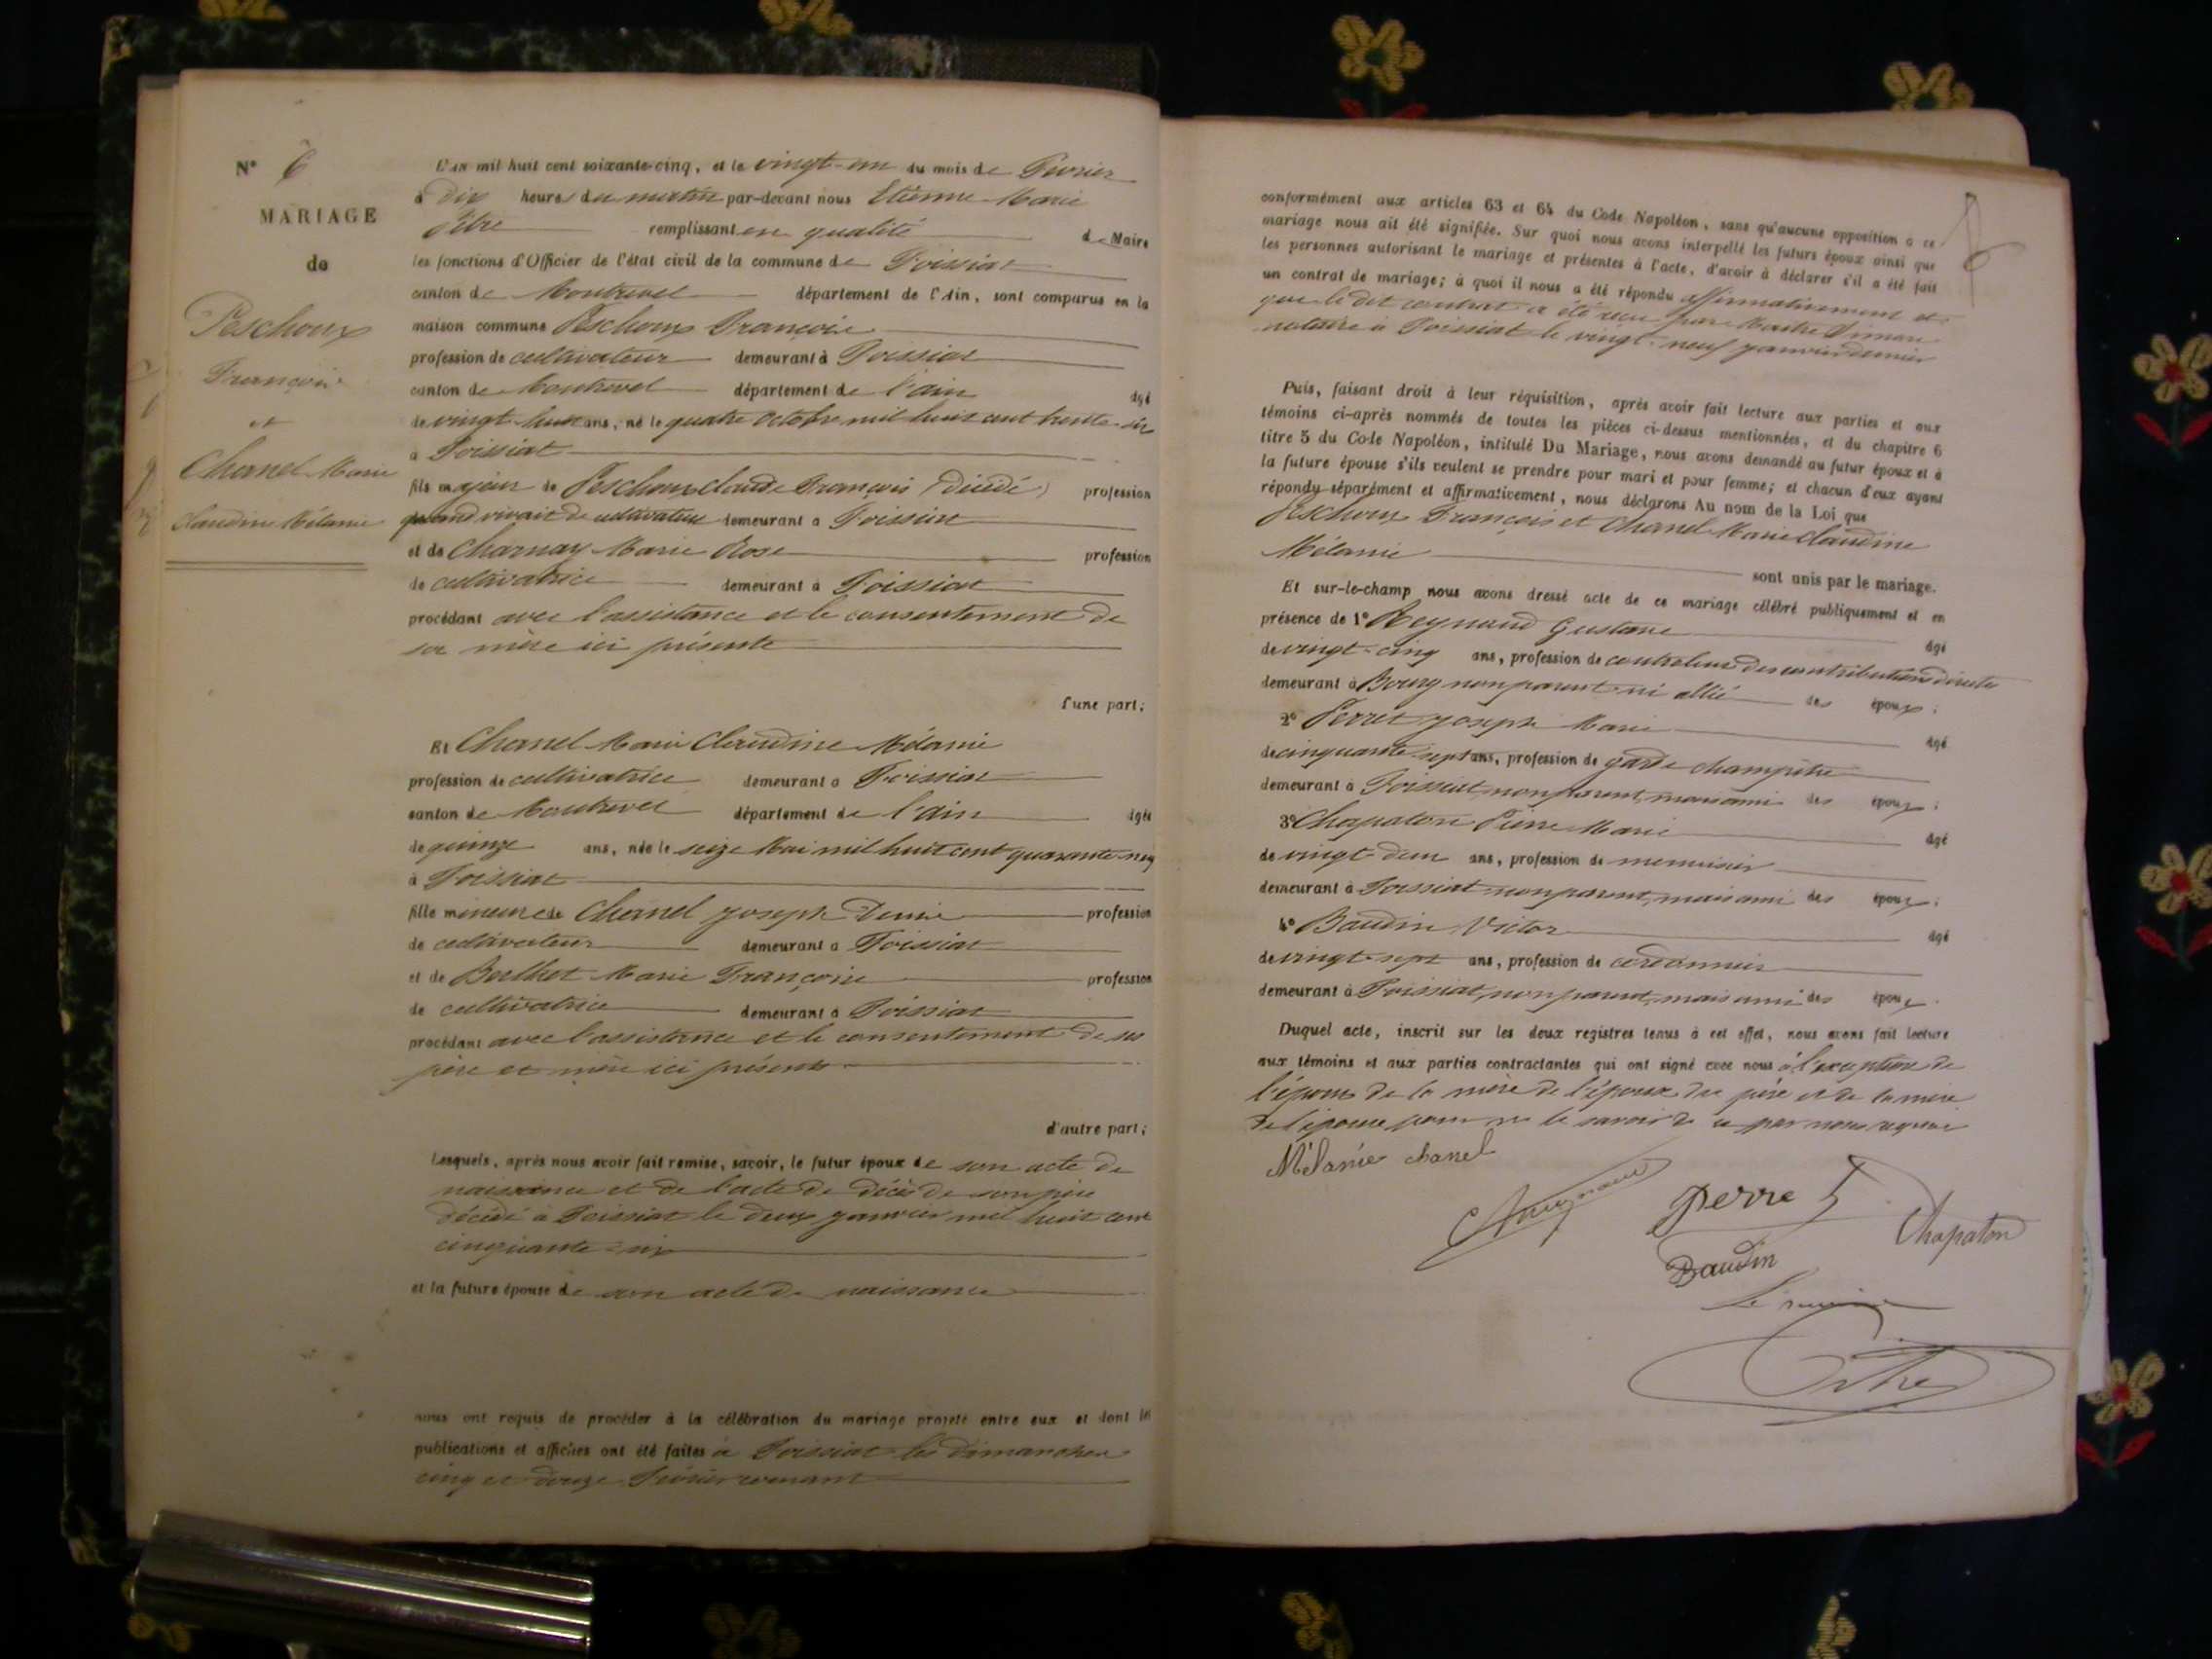 N° 6
MARIAGE
de
Peschoux
François
et
Chanel Marie
Claudine Mélanie
L'an mil huit cent soixante-cinq, et le vingt-un du mois de Février
à dix heures du matin par-devant nous Etienne Marie
remplissant en qualité de Maire
les fonctions d'Officier de l'état civil de la commune de Foissiat
canton de Montrevel département de l'Ain, sont comparus en la
maison commune Peschoux François
profession de cultivateur demeurant à Foissiat
canton de Montrevel département de l'ain âgé
de vingt huit ans, né le quatre octobre mil huit cent trente six
à Foissiat
fils majeur de Peschoux Claude François (décédé) profession
quand vivait de cultivateur demeurant à Foissiat
et de Charnay Marie Rose profession
de cultivatrice demeurant à Foissiat
procédant avec l'assistance et le consentement de
sa mère ici présente
d'une part;
Et Chanel Marie Claudine Mélanie
profession de cultivatrice demeurant à Foissiat
canton de Montrevel département de l'ain âgée
de quinze ans, née le seize Mai mil huit cent quarante neuf
à Foissiat
fille mineure de Chanel Joseph Denis profession
de cultivateur demeurant à Foissiat
et de Berthet Marie Françoise profession
de cultivatrice demeurant à Foissiat
procédant avec l'assistance et le consentement de ses
père et mère ici présents
d'autre part;
Lesquels, après nous avoir fait remise, savoir, le futur époux de son acte de
naissance et de l'acte de décès de son père
décédé à Foissiat le deux janvier mil huit cent
cinquante-six
et la future épouse de son acte de naissance
nous ont requis de procéder à la célébration du mariage projeté entre eux et dont les
publications et affiches ont été faites à Foissiat les dimanches
cinq et douze Février courant
conformément aux articles 63 et 64 du Code Napoléon, sans qu'aucune opposition à ce
mariage nous ait été signifiée. Sur quoi nous avons interpellé les futurs époux ainsi que
les personnes autorisant le mariage et présentes à l'acte, d'avoir à déclarer s'il a été fait
un contrat de mariage; à quoi il nous a été répondu affirmativement et
que le dit contrat a été reçu par Maître
notaire à Foissiat le vingt-neuf janvier dernier
Puis, faisant droit à leur réquisition, après avoir fait lecture aux parties et aux
témoins ci-après nommés de toutes les pièces ci-dessus mentionnées, et du chapitre 6
titre 5 du Code Napoléon, intitulé Du Mariage, nous avons demandé au futur époux et à
la future épouse s'ils veulent se prendre pour mari et pour femme; et chacun d'eux ayant
répondu séparément et affirmativement, nous déclarons Au nom de la Loi que
Peschoux François et Chanel Marie Claudine
Mélanie
sont unis par le mariage.
Et sur-le-champ nous avons dressé acte de ce mariage célébré publiquement et en
présence de 1° Reynaud Gustave âgé
de vingt-cinq ans, profession de controleur des contributions directes
demeurant à Bourg non parent ni allié des époux;
2° Perret Joseph Marie âgé
de cinquante sept ans, profession de garde champêtre
demeurant à Foissiat non parent, mais ami des époux;
3° Chapaton Pierre Marie âgé
de vingt deux ans, profession de menuisier
demeurant à Foissiat non parent, mais ami des époux;
4° Baudin Victor âgé
de vingt-sept ans, profession de cordonnier
demeurant à Foissiat, non parent, mais ami des époux.
Duquel acte, inscrit sur les deux registres tenus à cet effet, nous avons fait lecture
aux témoins et aux parties contractantes qui ont signé avec nous à l'exception de
l'époux de la mère de l'époux du père et de la mère
de l'épouse pour ne le savoir de ce par nous requis
Mélanie chanel
Perret
Chapaton
Baudin
Le maire